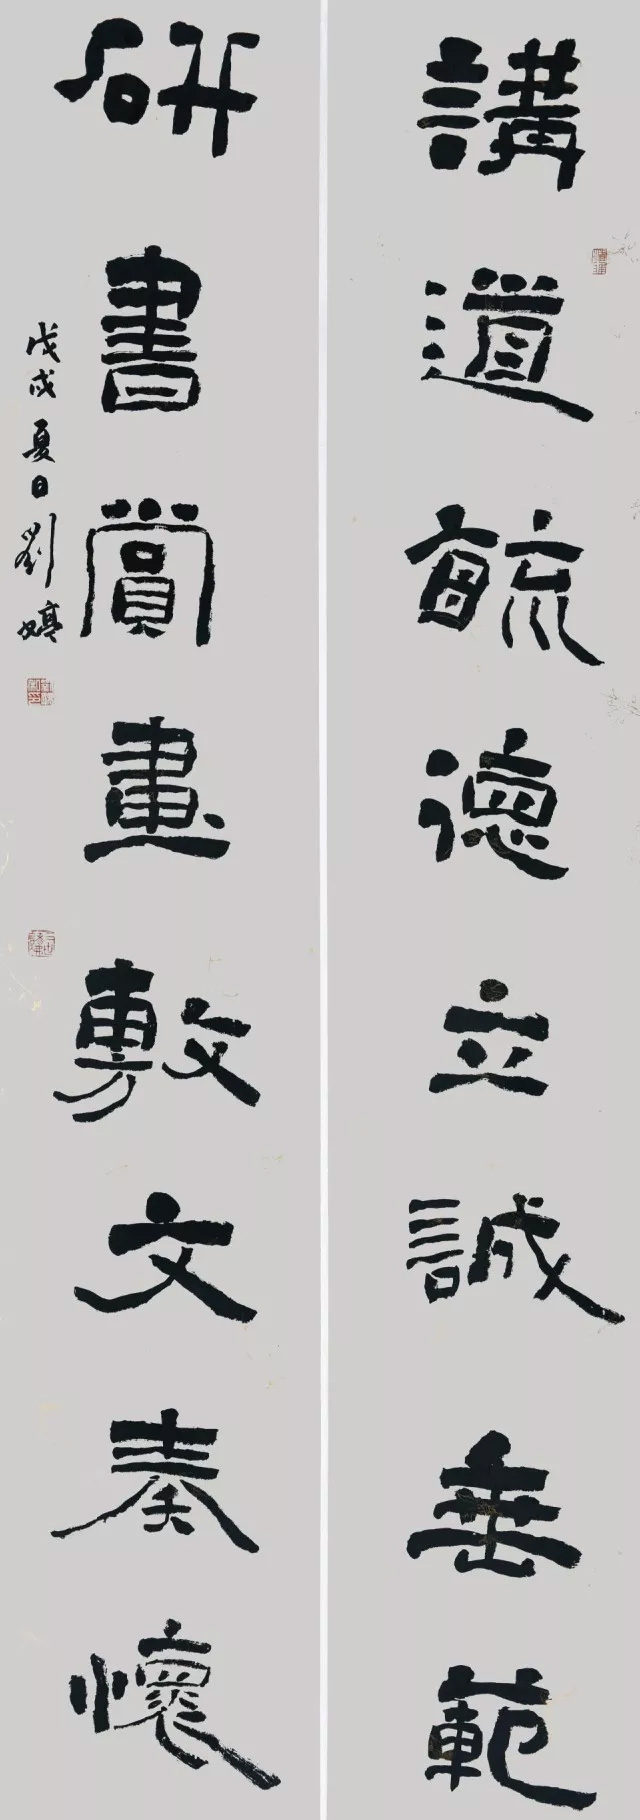 講道毓德立誠垂範
研書賞畫敷文奏懷
戊戌夏日劉婷